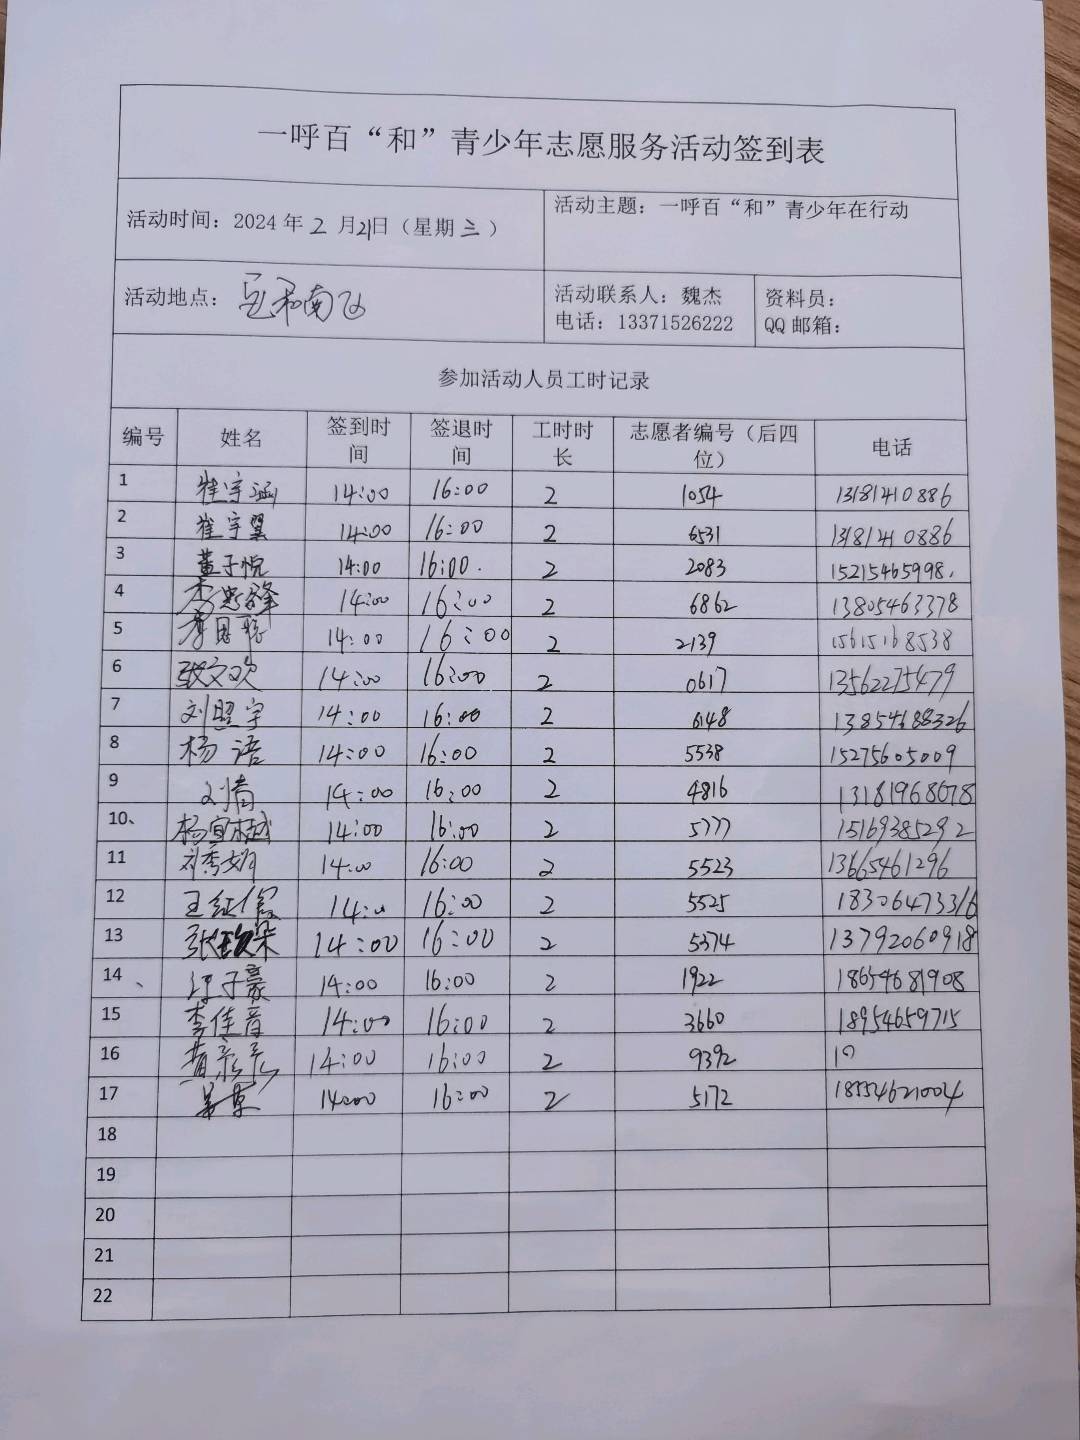 一呼百“和”青少年志愿服务活动签到表
活动时间：2024年2月21日（星期三）
活动主题：一呼百“和”青少年在行动
活动地点：
活动联系人：魏杰
电话：13371526222
资料员：
QQ邮箱：
参加活动人员工时记录
编号 姓名 签到时间 签退时间 工时时长 志愿者编号（后四位） 电话
1 崔宇涵 14:00 16:00 2 1054 13181410886
2 崔宇翼 14:00 16:00 2 6531 13181410886
3 董子悦 14:00 16:00. 2 2083 15215465998.
4 14:00 16:00 2 6862 13805463378
5 14:00 16:00 2 2139 15615168538
6 张文欢 14:00 16:00 2 0617 13562275479
7 刘照宇 14:00 16:00 2 6148 13854688326
8 杨语 14:00 16:00 2 5538 15275605009
9 刘倩 14:00 16:00 2 4816 13181968678
10、 杨宜樾 14:00 16:00 2 5777 15169385292
11 14:00 16:00 2 5523 13665461296
12 14:00 16:00 2 5525 18306473316
13 14:00 16:00 2 5374 13792060918
14、 14:00 16:00 2 1922 18654681908
15 李佳音 14:00 16:00 2 3660 18954659715
16 14:00 16:00 2 9392
17 14:00 16:00 2 5172 18554621004
18
19
20
21
22